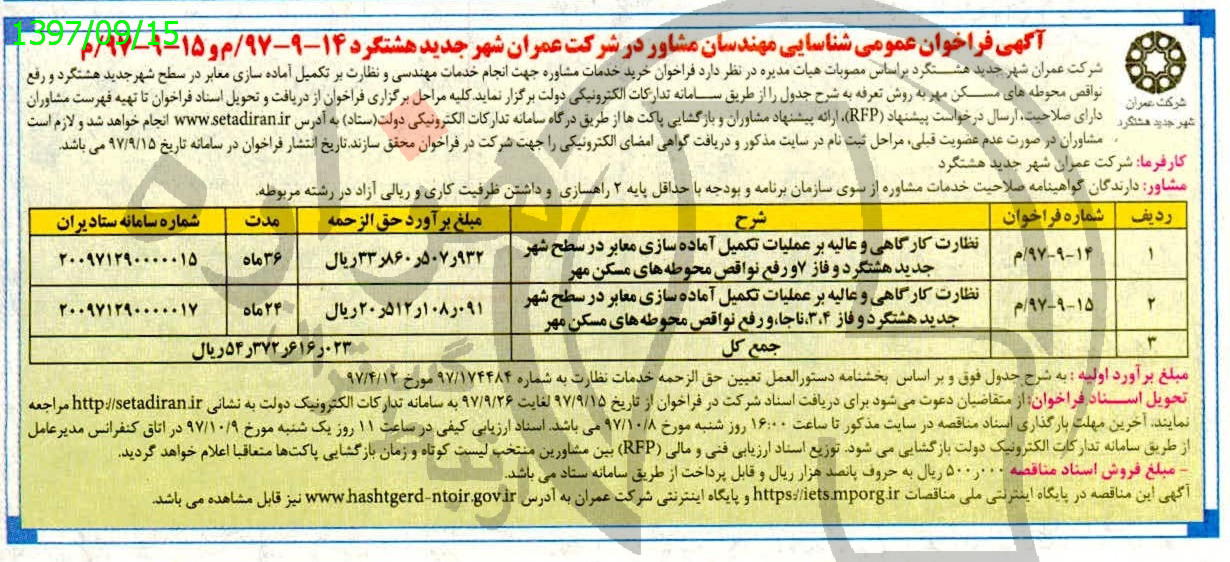 1397/09/15
آگهی فراخوان عمومی شناسایی مهندسان مشاور در شرکت عمران شهر جدید هشتگرد ۱۴-۹-۹۷/م و ۱۵-۹-۹۷/م
شرکت عمران
شهر جدید هشتگرد
شرکت عمران شهر جدید هشتگرد براساس مصوبات هیات مدیره در نظر دارد فراخوان خرید خدمات مشاوره جهت انجام خدمات مهندسی و نظارت بر تکمیل آماده سازی معابر در سطح شهرجدید هشتگرد و رفع
نواقص محوطه های مسکن مهر به روش تعرفه به شرح جدول را از طریق سامانه تدارکات الکترونیکی دولت برگزار نماید.کلیه مراحل برگزاری فراخوان از دریافت و تحویل اسناد فراخوان تا تهیه فهرست مشاوران
دارای صلاحیت، ارسال درخواست پیشنهاد (RFP)، ارائه پیشنهاد مشاوران و بازگشایی پاکت ها از طریق درگاه سامانه تدارکات الکترونیکی دولت(ستاد) به آدرس www.setadiran.ir انجام خواهد شد و لازم است
مشاوران در صورت عدم عضویت قبلی، مراحل ثبت نام در سایت مذکور و دریافت گواهی امضای الکترونیکی را جهت شرکت در فراخوان محقق سازند.تاریخ انتشار فراخوان در سامانه تاریخ ۹۷/۹/۱۵ می باشد.
کارفرما: شرکت عمران شهر جدید هشتگرد
مشاور: دارندگان گواهینامه صلاحیت خدمات مشاوره از سوی سازمان برنامه و بودجه با حداقل پایه ۲ راهسازی و داشتن ظرفیت کاری و ریالی آزاد در رشته مربوطه.
ردیف شماره فراخوان شرح مبلغ برآورد حق الزحمه مدت شماره سامانه ستاد ایران
۱ ۱۴-۹-۹۷/م نظارت کارگاهی و عالیه بر عملیات تکمیل آماده سازی معابر در سطح شهر جدید هشتگرد و فاز ۷ و رفع نواقص محوطه‌های مسکن مهر ۳۳٫۸۶۰٫۵۰۷٫۹۳۲ ریال ۳۶ماه ۲۰۰۹۷۱۲۹۰۰۰۰۰۱۵
۲ ۱۵-۹-۹۷/م نظارت کارگاهی و عالیه بر عملیات تکمیل آماده سازی معابر در سطح شهر جدید هشتگرد و فاز ۳،۴،ناجا، و رفع نواقص محوطه‌های مسکن مهر ۲۰٫۵۱۲٫۱۰۸٫۰۹۱ ریال ۲۴ماه ۲۰۰۹۷۱۲۹۰۰۰۰۰۱۷
۳ جمع کل ۵۴٫۳۷۲٫۶۱۶٫۰۲۳ ریال
مبلغ برآورد اولیه : به شرح جدول فوق و بر اساس بخشنامه دستورالعمل تعیین حق الزحمه خدمات نظارت به شماره ۹۷/۱۷۴۴۸۴ مورخ ۹۷/۴/۱۲
تحویل اسناد فراخوان: از متقاضیان دعوت می‌شود برای دریافت اسناد شرکت در فراخوان از تاریخ ۹۷/۹/۱۵ لغایت ۹۷/۹/۲۶ به سامانه تدارکات الکترونیک دولت به نشانی http://setadiran.ir مراجعه
نمایند. آخرین مهلت بارگذاری اسناد مناقصه در سایت مذکور تا ساعت ۱۶:۰۰ روز شنبه مورخ ۹۷/۱۰/۸ می باشد. اسناد ارزیابی کیفی در ساعت ۱۱ روز یک شنبه مورخ ۹۷/۱۰/۹ در اتاق کنفرانس مدیرعامل
از طریق سامانه تدارکات الکترونیک دولت بازگشایی می شود. توزیع اسناد ارزیابی فنی و مالی (RFP) بین مشاورین منتخب لیست کوتاه و زمان بازگشایی پاکت‌ها متعاقبا اعلام خواهد گردید.
- مبلغ فروش اسناد مناقصه ۵۰۰٫۰۰۰ ریال به حروف پانصد هزار ریال و قابل پرداخت از طریق سامانه ستاد می باشد.
آگهی این مناقصه در پایگاه اینترنتی ملی مناقصات https://iets.mporg.ir و پایگاه اینترنتی شرکت عمران به آدرس www.hashtgerd-ntoir.gov.ir نیز قابل مشاهده می باشد.